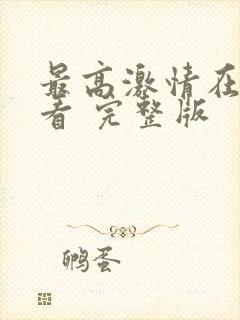 最高激情在
看 完整版
鸭蛋